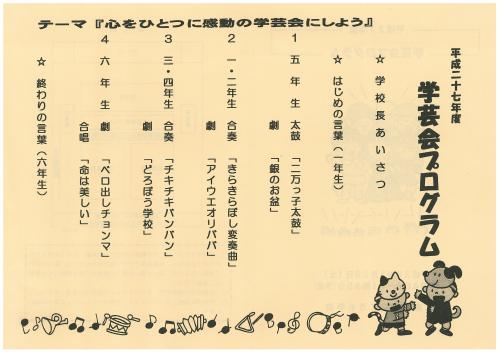 平成二十七年度
学芸会プログラム
☆ 学校長あいさつ
☆ はじめの言葉（一年生）
１ 五年生 太鼓 「二万っ子太鼓」
劇 「銀のお盆」
２ 一・二年生 合奏 「きらきらぼし変奏曲」
劇 「アイウエオリババ」
３ 三・四年生 合奏 「チキチキバンバン」
劇 「どろぼう学校」
４ 六年生 劇 「ベロ出しチョンマ」
合唱 「命は美しい」
☆ 終わりの言葉（六年生）
テーマ『心をひとつに感動の学芸会にしよう』